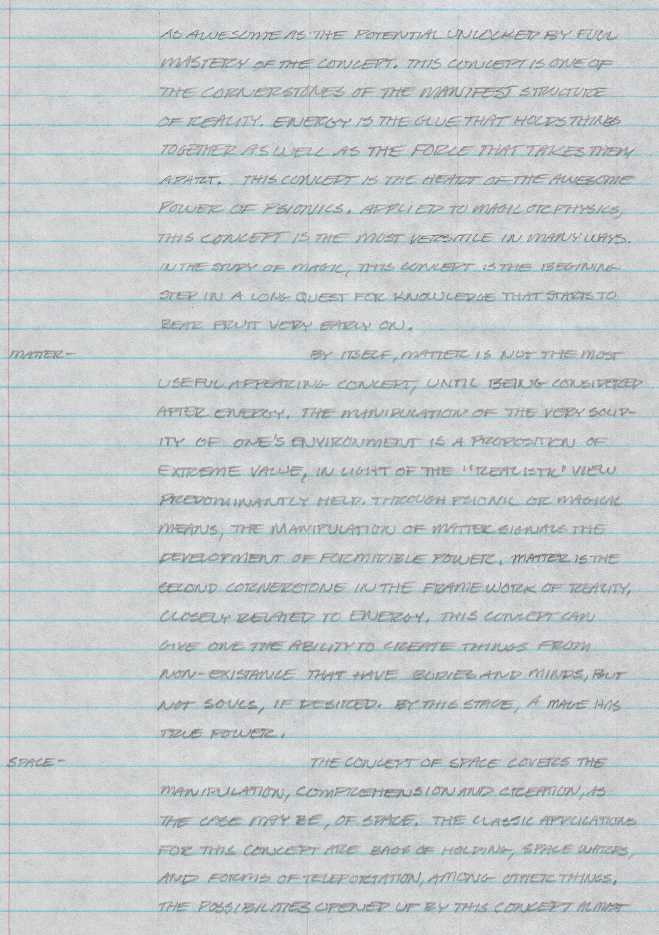 AS AWESOME AS THE POTENTIAL UNLOCKED BY FULL
MASTERY OF THE CONCEPT. THIS CONCEPT IS ONE OF
THE CORNERSTONES OF THE MANIFEST STRUCTURE
OF REALITY. ENERGY IS THE GLUE THAT HOLDS THINGS
TOGETHER AS WELL AS THE FORCE THAT TAKES THEM
APART. THIS CONCEPT IS THE HEART OF THE AWESOME
POWER OF PSIONICS. APPLIED TO MAGIC OR PHYSICS,
THIS CONCEPT IS THE MOST VERSITILE IN MANY WAYS.
IN THE STUDY OF MAGIC, THIS CONCEPT IS THE BEGINING
STEP IN A LONG QUEST FOR KNOWLEDGE THAT STARTS TO
BEAR FRUIT VERY EARLY ON.
MATTER- BY ITSELF, MATTER IS NOT THE MOST
USEFUL APPEARING CONCEPT, UNTIL BEING CONSIDERED
AFTER ENERGY. THE MANIPULATION OF THE VERY SOLID-
ITY OF ONE'S ENVIRONMENT IS A PROPOSITION OF
EXTREME VALUE, IN LIGHT OF THE "REALISTIC" VIEW
PREDOMINANTLY HELD. THROUGH PSIONIC OR MAGICK
MEANS, THE MANIPULATION OF MATTER SIGNALS THE
DEVELOPMENT OF FORMITIBLE POWER. MATTER IS THE
SECOND CORNERSTONE IN THE FRAMEWORK OF REALITY,
CLOSELY RELATED TO ENERGY. THIS CONCEPT CAN
GIVE ONE THE ABILITY TO CREATE THINGS FROM
NON-EXISTANCE THAT HAVE BODIES AND MINDS, BUT
NOT SOULS, IF DESIRED. BY THIS STAGE, A MAGE HAS
TRUE POWER.
SPACE- THE CONCEPT OF SPACE COVERS THE
MANIPULATION, COMPREHENSION AND CREATION, AS
THE CASE MAY BE, OF SPACE. THE CLASSIC APPLICATIONS
FOR THIS CONCEPT ARE BAGS OF HOLDING, SPACE WARPS,
AND FORMS OF TELEPORTATION, AMONG OTHER THINGS.
THE POSSIBILITIES OPENED UP BY THIS CONCEPT ALMOST